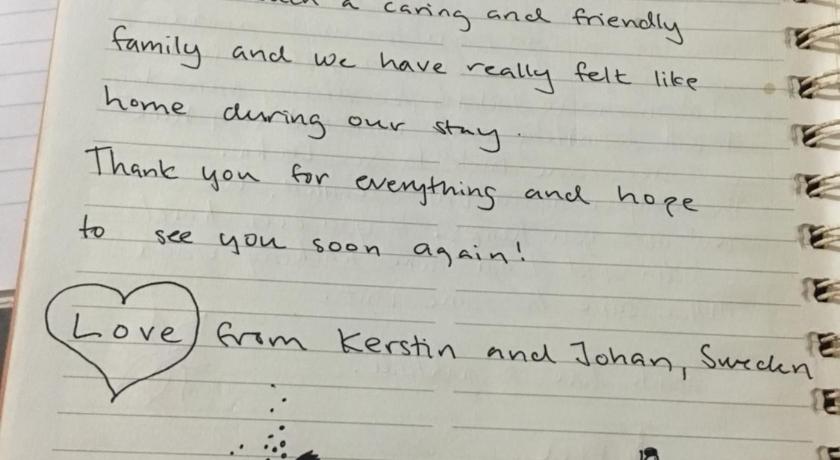 a caring and friendly
family and we have really felt like
home during our stay.
Thank you for everything and hope
to see you soon again!
Love from Kerstin and Johan, Sweden